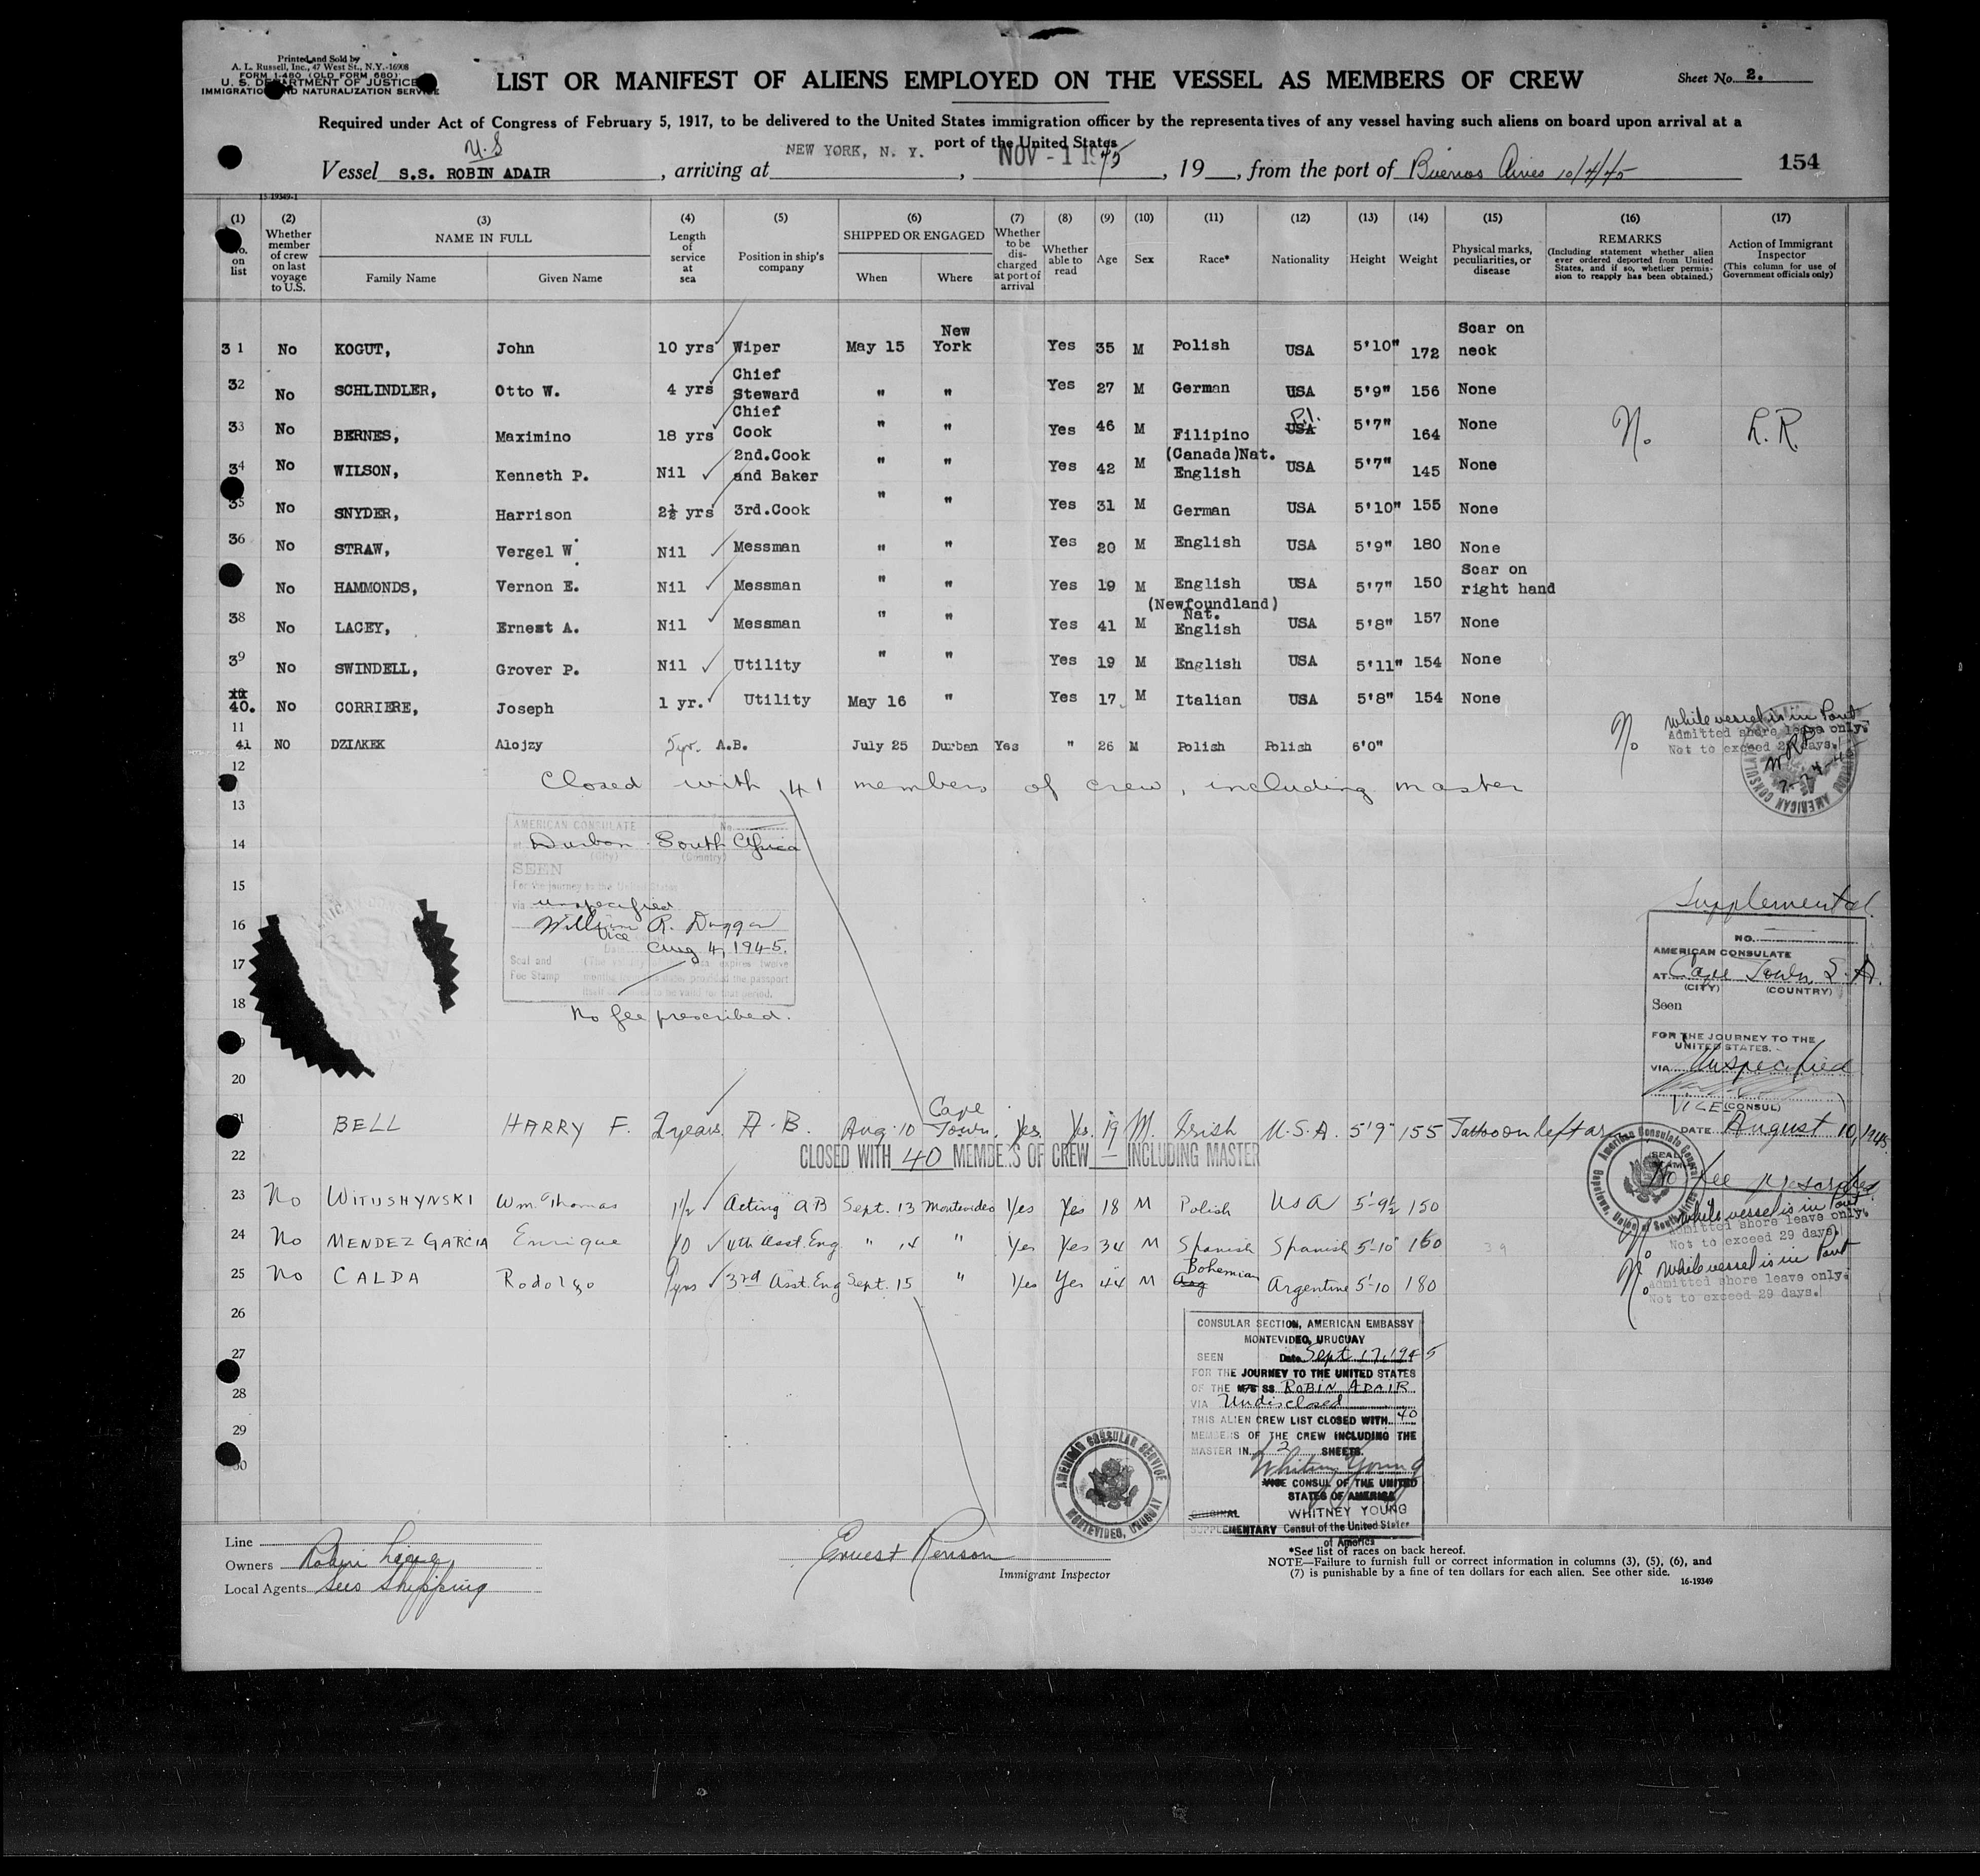 Printed and Sold by
A. L. Russell, Inc., 47 West St., N.Y.-16908
FORM I-480 (OLD FORM 680)
U. S. DEPARTMENT OF JUSTICE
IMMIGRATION AND NATURALIZATION SERVICE
LIST OR MANIFEST OF ALIENS EMPLOYED ON THE VESSEL AS MEMBERS OF CREW
Sheet No. 2.
Required under Act of Congress of February 5, 1917, to be delivered to the United States immigration officer by the representatives of any vessel having such aliens on board upon arrival at a
port of the United States
U.S
Vessel S.S. ROBIN ADAIR, arriving at NEW YORK, N. Y., NOV - 1 1945, 19, from the port of Buenos Aires 10/4/45
154
15-19349-1
(1) No. on list
(2) Whether member of crew on last voyage to U.S.
(3) NAME IN FULL Family Name Given Name
(4) Length of service at sea
(5) Position in ship's company
(6) SHIPPED OR ENGAGED When Where
(7) Whether to be discharged at port of arrival
(8) Whether able to read
(9) Age
(10) Sex
(11) Race*
(12) Nationality
(13) Height
(14) Weight
(15) Physical marks, peculiarities, or disease
(16) REMARKS (Including statement whether alien ever ordered deported from United States, and if so, whether permission to reapply has been obtained.)
(17) Action of Immigrant Inspector (This column for use of Government officials only)
31 No KOGUT, John 10 yrs Wiper May 15 New York Yes 35 M Polish USA 5'10" 172 Scar on neck
32 No SCHLINDLER, Otto W. 4 yrs Chief Steward " " Yes 27 M German USA 5'9" 156 None
33 No BERNES, Maximino 18 yrs Chief Cook " " Yes 46 M Filipino USA P.I. 5'7" 164 None No L.R.
34 No WILSON, Kenneth P. Nil 2nd.Cook and Baker " " Yes 42 M (Canada)Nat. English USA 5'7" 145 None
35 No SNYDER, Harrison 2½ yrs 3rd.Cook " " Yes 31 M German USA 5'10" 155 None
36 No STRAW, Vergel W. Nil Messman " " Yes 20 M English USA 5'9" 180 None
No HAMMONDS, Vernon E. Nil Messman " " Yes 19 M English USA 5'7" 150 Scar on right hand
38 No LACEY, Ernest A. Nil Messman " " Yes 41 M (Newfoundland) Nat. English USA 5'8" 157 None
39 No SWINDELL, Grover P. Nil Utility " " Yes 19 M English USA 5'11" 154 None
40. No CORRIERE, Joseph 1 yr. Utility May 16 " Yes 17 M Italian USA 5'8" 154 None
11
41 NO DZIAKEK Alojzy 5yr. A.B. July 25 Durban Yes " 26 M Polish Polish 6'0" No
while vessel is in Port
Admitted shore leave only.
Not to exceed 29 days.
12
Closed with 41 members of crew, including master
13
14
AMERICAN CONSULATE No.
at Durban South Africa
(City) (Country)
SEEN
For the journey to the United States
via unspecified
William R. Duggan
Vice
Aug 4, 1945.
Seal and
Fee Stamp
No fee prescribed.
15
16
17
18
20
Supplemental
NO.
AMERICAN CONSULATE
AT Cape Town, S.A.
(CITY) (COUNTRY)
Seen
FOR THE JOURNEY TO THE
UNITED STATES.
VIA Unspecified
VICE (CONSUL)
DATE August 10, 1945
American Consulate General
Capetown, Union of South Africa
No fee prescribed
21 BELL HARRY F. 2 years A.B. Aug. 10 Cape Town. Yes Yes. 19 M. Irish U.S.A. 5'9" 155 Tattoo on left ar
22
CLOSED WITH 40 MEMBERS OF CREW INCLUDING MASTER
23 No WITUSHYNSKI Wm. Thomas 1½ Acting AB Sept. 13 Montevideo Yes Yes 18 M Polish USA 5'-9½ 150
24 No MENDEZ GARCIA Enrique 10 4th Asst. Eng " 14 " Yes Yes 34 M Spanish Spanish 5'-10" 160 No
while vessel is in Port
Admitted shore leave only.
Not to exceed 29 days.
25 No CALDA Rodolfo 9yrs 3rd Asst. Eng Sept. 15 " Yes Yes 44 M Arg Bohemian Argentine 5'-10 180 No
while vessel is in Port
Admitted shore leave only.
Not to exceed 29 days.
26
27
28
29
30
CONSULAR SECTION, AMERICAN EMBASSY
MONTEVIDEO, URUGUAY
SEEN Date Sept 17, 1945
FOR THE JOURNEY TO THE UNITED STATES
OF THE M/S SS ROBIN ADAIR
VIA Undisclosed
THIS ALIEN CREW LIST CLOSED WITH 40
MEMBERS OF THE CREW INCLUDING THE
MASTER IN 2 SHEETS.
Whitney Young
VICE CONSUL OF THE UNITED
STATES OF AMERICA
ORIGINAL WHITNEY YOUNG
SUPPLEMENTARY Consul of the United States
of America
AMERICAN CONSULAR SERVICE
MONTEVIDEO, URUGUAY
Line
Owners Robin Line
Local Agents Seas Shipping
Ernest Renson
Immigrant Inspector
*See list of races on back hereof.
NOTE—Failure to furnish full or correct information in columns (3), (5), (6), and
(7) is punishable by a fine of ten dollars for each alien. See other side.
16-19349